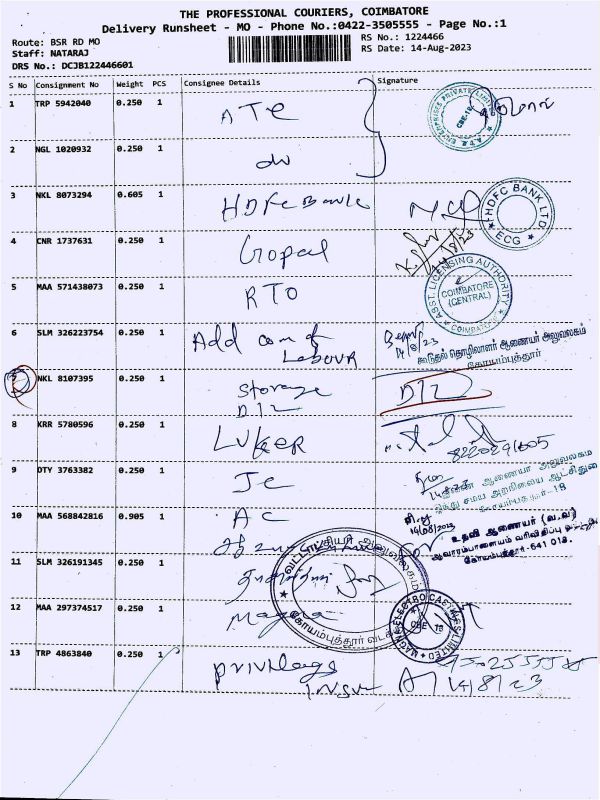 THE PROFESSIONAL COURIERS, COIMBATORE
Delivery Runsheet - MO - Phone No.:0422-3505555 - Page No.:1
Route: BSR RD MO
Staff: NATARAJ
DRS No.: DCJB122446601
RS No.: 1224466
RS Date: 14-Aug-2023
S No Consignment No Weight PCS Consignee Details Signature
1 TRP 5942040 0.250 1 ATE
2 NGL 1020932 0.250 1 do
3 NKL 8073294 0.605 1 HDFC Bank
HDFC BANK LTD
ECG
4 CNR 1737631 0.250 1 Gopal
14/8/23
5 MAA 571438073 0.250 1 RTO
ASST. LICENSING AUTHORITY
COIMBATORE
(CENTRAL)
COIMBATORE
6 SLM 326223754 0.250 1 Add com of
Labour
14/8/23
கூடுதல் தொழிலாளர் ஆணையர் அலுவலகம்
கோயம்புத்தூர்
7 NKL 8107395 0.250 1 Storage
D12 D12
8 KRR 5780596 0.250 1 LUKER
9 DTY 3763382 0.250 1 JC
ஆணையர் அலுவலகம்
இந்து சமய அறநிலைய ஆட்சித்துறை
கோயம்புத்தூர்-18
10 MAA 568842816 0.905 1 AC
14/08/2023
உதவி ஆணையர் (வ.வ)
ஆவாரம்பாளையம் வரிவிதிப்பு
கோயம்புத்தூர்-641 018.
11 SLM 326191345 0.250 1
வட்டாட்சியர் அலுவலகம்
கோயம்புத்தூர் வடக்கு
12 MAA 297374517 0.250 1 Magna
MAGNA ELECTRO CASTINGS LIMITED
CBE 18
13 TRP 4863840 0.250 1 Privilege
14/8/23